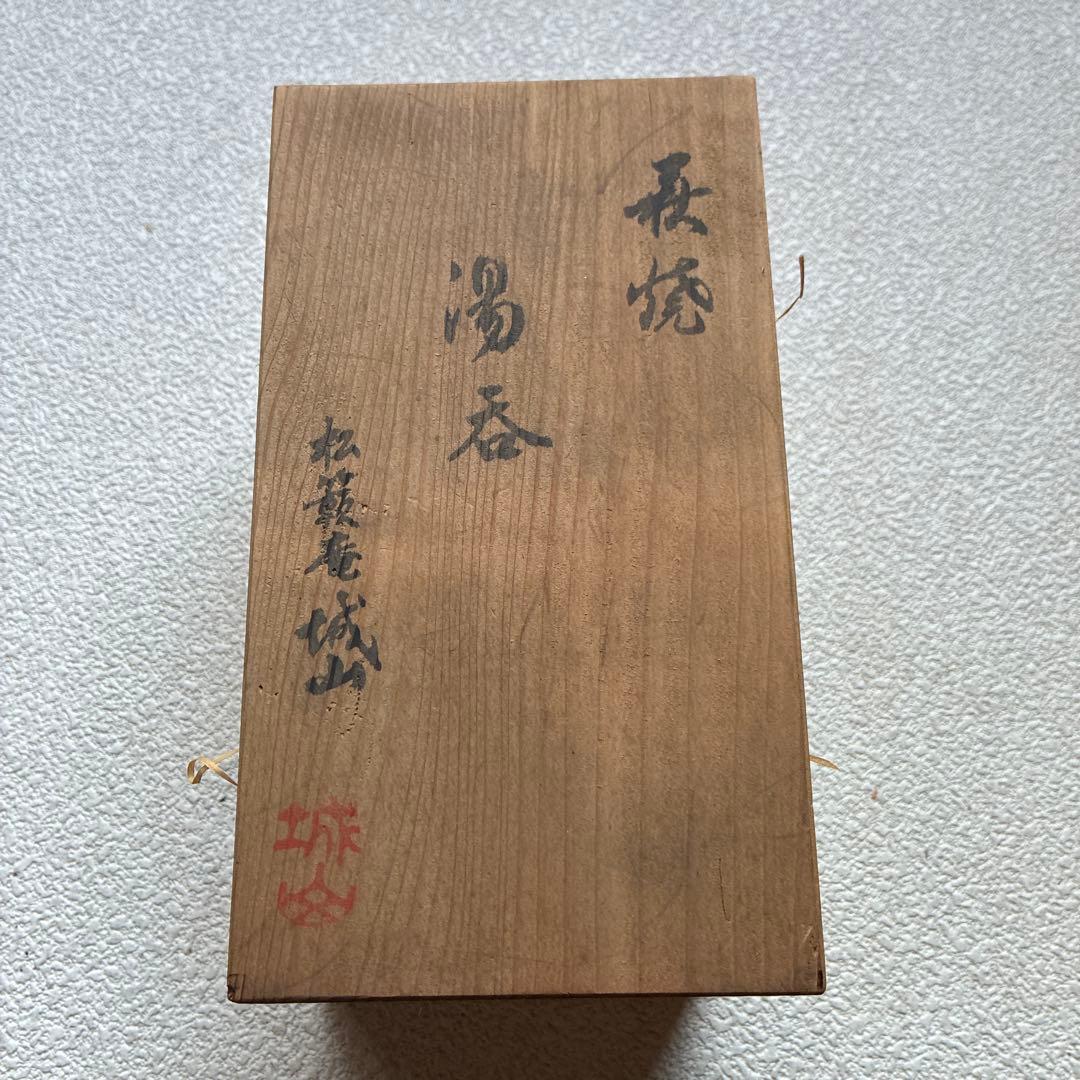 萩焼
湯呑
松籟庵城山
城山